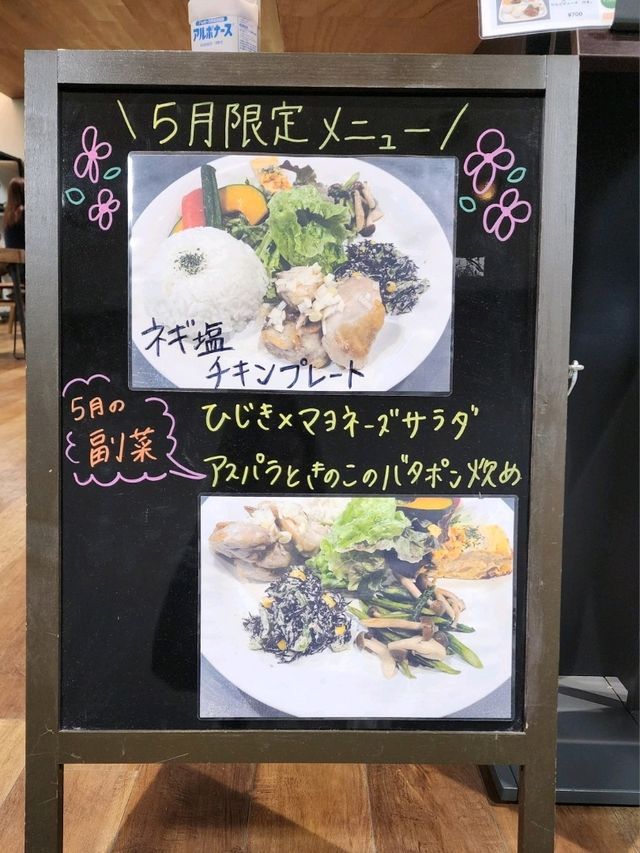 アルボナース
¥700
\5月限定メニュー/
ネギ塩
チキンプレート
5月の
副菜
ひじき×マヨネーズサラダ
アスパラときのこのバタポン炊め